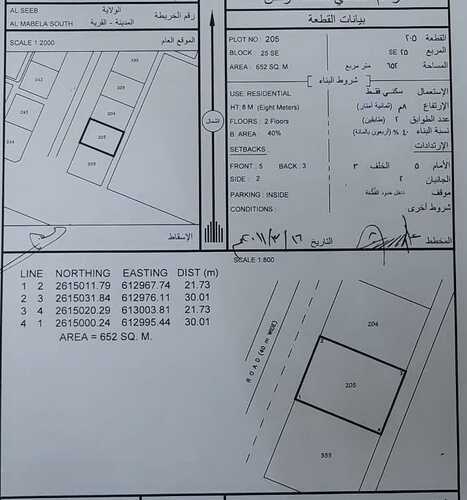 AL SEEB
الولاية
رقم الخريطة
AL MABELA SOUTH
المدينة - القرية
SCALE 1:2000
الموقع العام
204
205
333
شمال
الإسقاط
بيانات القطعة
PLOT NO : 205
٢٠٥
القطعة
BLOCK : 25 SE
SE ٢٥
المربع
AREA : 652 SQ. M
متر مربع
٦٥٢
المساحة
شروط البناء
USE: RESIDENTIAL
سكني فقط
الإستعمال
HT: 8 M (Eight Meters)
٨م (ثمانية أمتار)
الإرتفاع
FLOORS : 2 Floors
٢ (طابقين)
عدد الطوابق
B. AREA : 40%
٤٠ % (أربعون بالمائة)
نسبة البناء
SETBACKS
الإرتدادات
FRONT : 5 BACK : 3
٣
الخلف
٥
الأمام
SIDE : 2
٢
الجانبان
PARKING : INSIDE
داخل حدود القطعة
موقف
CONDITIONS :
شروط أخرى
٢٠١١/٣/١٦
التاريخ
المخطط
SCALE 1:800
LINE NORTHING EASTING DIST (m)
1 2 2615011.79 612967.74 21.73
2 3 2615031.84 612976.11 30.01
3 4 2615020.29 613003.81 21.73
4 1 2615000.24 612995.44 30.01
AREA = 652 SQ. M.
ROAD (40 m WIDE)
204
2
3
205
1
4
333